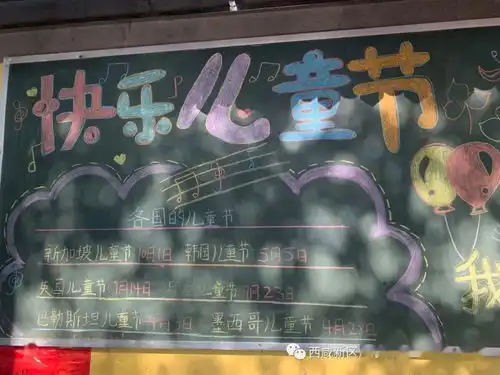 快乐儿童节
各国的儿童节
新加坡儿童节10月1日 韩国儿童节5月5日
英国儿童节7月14日 儿童节1月25日
巴勒斯坦儿童节4月5日 墨西哥儿童节4月23日
我
西咸新区